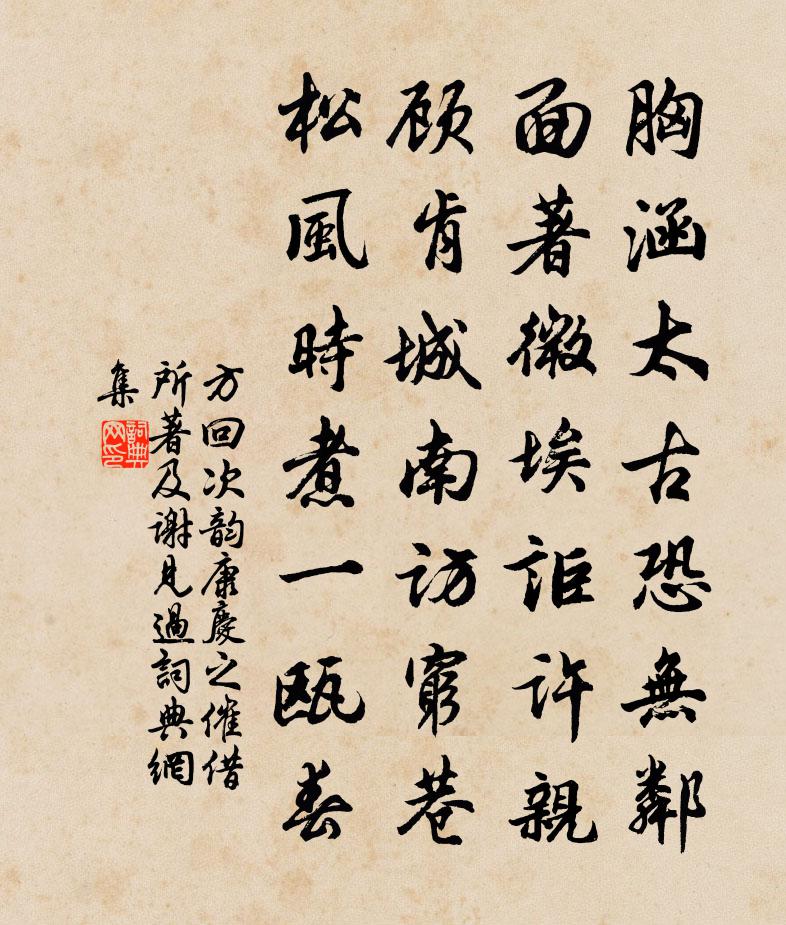 胸涵太古恐無鄰
面著微埃詎許親
顾肯城南訪窮巷
松風時煮一瓯春
方回次韵康慶之催借
所著及谢見過詞典網
集
詞典网印